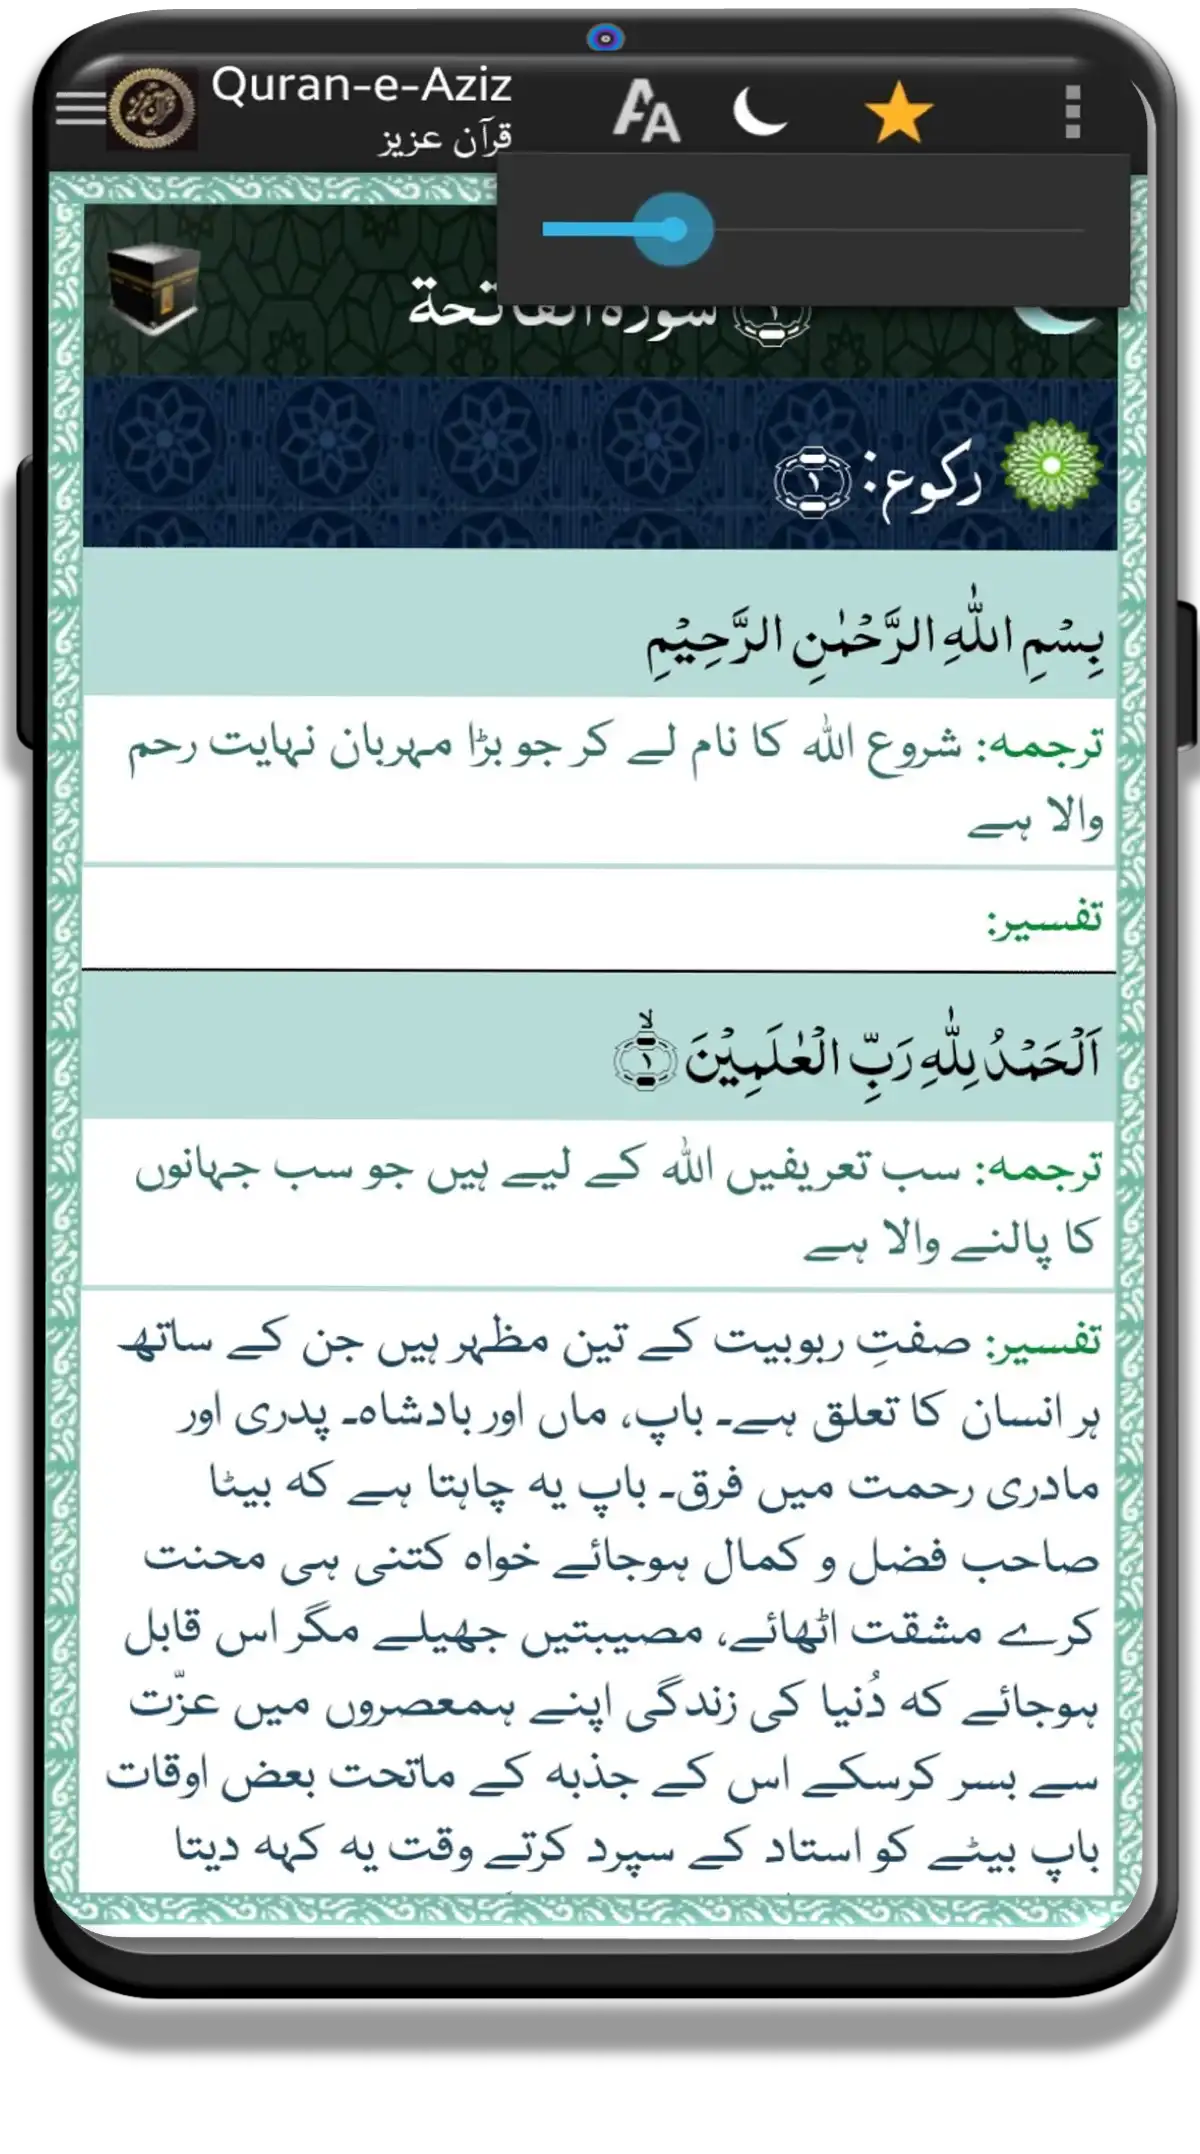 Quran-e-Aziz
قرآن عزیز
سورة الفاتحة ١
رکوع: ١
بِسْمِ اللّٰهِ الرَّحْمٰنِ الرَّحِیْمِ
ترجمہ: شروع اللہ کا نام لے کر جو بڑا مہربان نہایت رحم
والا ہے
تفسیر:
اَلْحَمْدُ لِلّٰهِ رَبِّ الْعٰلَمِیْنَ ۙ﴿١﴾
ترجمہ: سب تعریفیں اللہ کے لیے ہیں جو سب جہانوں
کا پالنے والا ہے
تفسیر: صفتِ ربوبیت کے تین مظہر ہیں جن کے ساتھ
ہر انسان کا تعلق ہے۔ باپ، ماں اور بادشاہ۔ پدری اور
مادری رحمت میں فرق۔ باپ یہ چاہتا ہے کہ بیٹا
صاحب فضل و کمال ہوجائے خواہ کتنی ہی محنت
کرے مشقت اٹھائے، مصیبتیں جھیلے مگر اس قابل
ہوجائے کہ دُنیا کی زندگی اپنے ہمعصروں میں عزّت
سے بسر کرسکے اس کے جذبہ کے ماتحت بعض اوقات
باپ بیٹے کو استاد کے سپرد کرتے وقت یہ کہہ دیتا